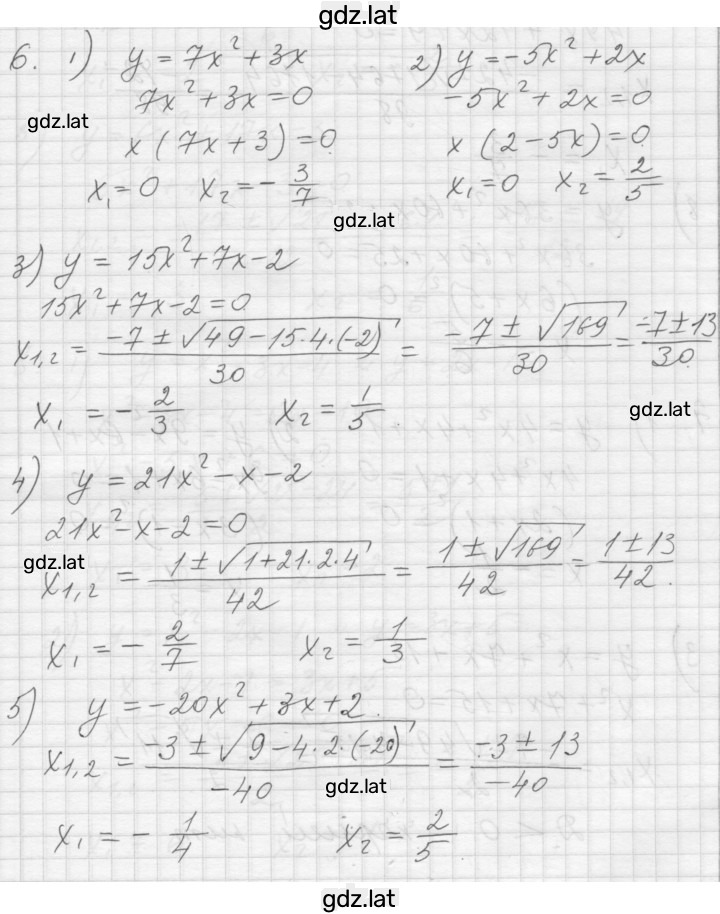 gdz.lat
6. 1) y = 7x² + 3x
7x² + 3x = 0
x (7x + 3) = 0
x₁ = 0 x₂ = -3/7
2) y = -5x² + 2x
-5x² + 2x = 0
x (2 - 5x) = 0
x₁ = 0 x₂ = 2/5
gdz.lat
gdz.lat
3) y = 15x² + 7x - 2
15x² + 7x - 2 = 0
x₁,₂ = (-7 ± √(49 - 15·4·(-2)))/30 = (-7 ± √169)/30 = (-7 ± 13)/30
x₁ = -2/3 x₂ = 1/5
gdz.lat
4) y = 21x² - x - 2
21x² - x - 2 = 0
gdz.lat
x₁,₂ = (1 ± √(1 + 21·2·4))/42 = (1 ± √169)/42 = (1 ± 13)/42.
x₁ = -2/7 x₂ = 1/3
5) y = -20x² + 3x + 2.
x₁,₂ = (-3 ± √(9 - 4·2·(-20)))/-40 = (-3 ± 13)/-40
gdz.lat
x₁ = -1/4 x₂ = 2/5
gdz.lat